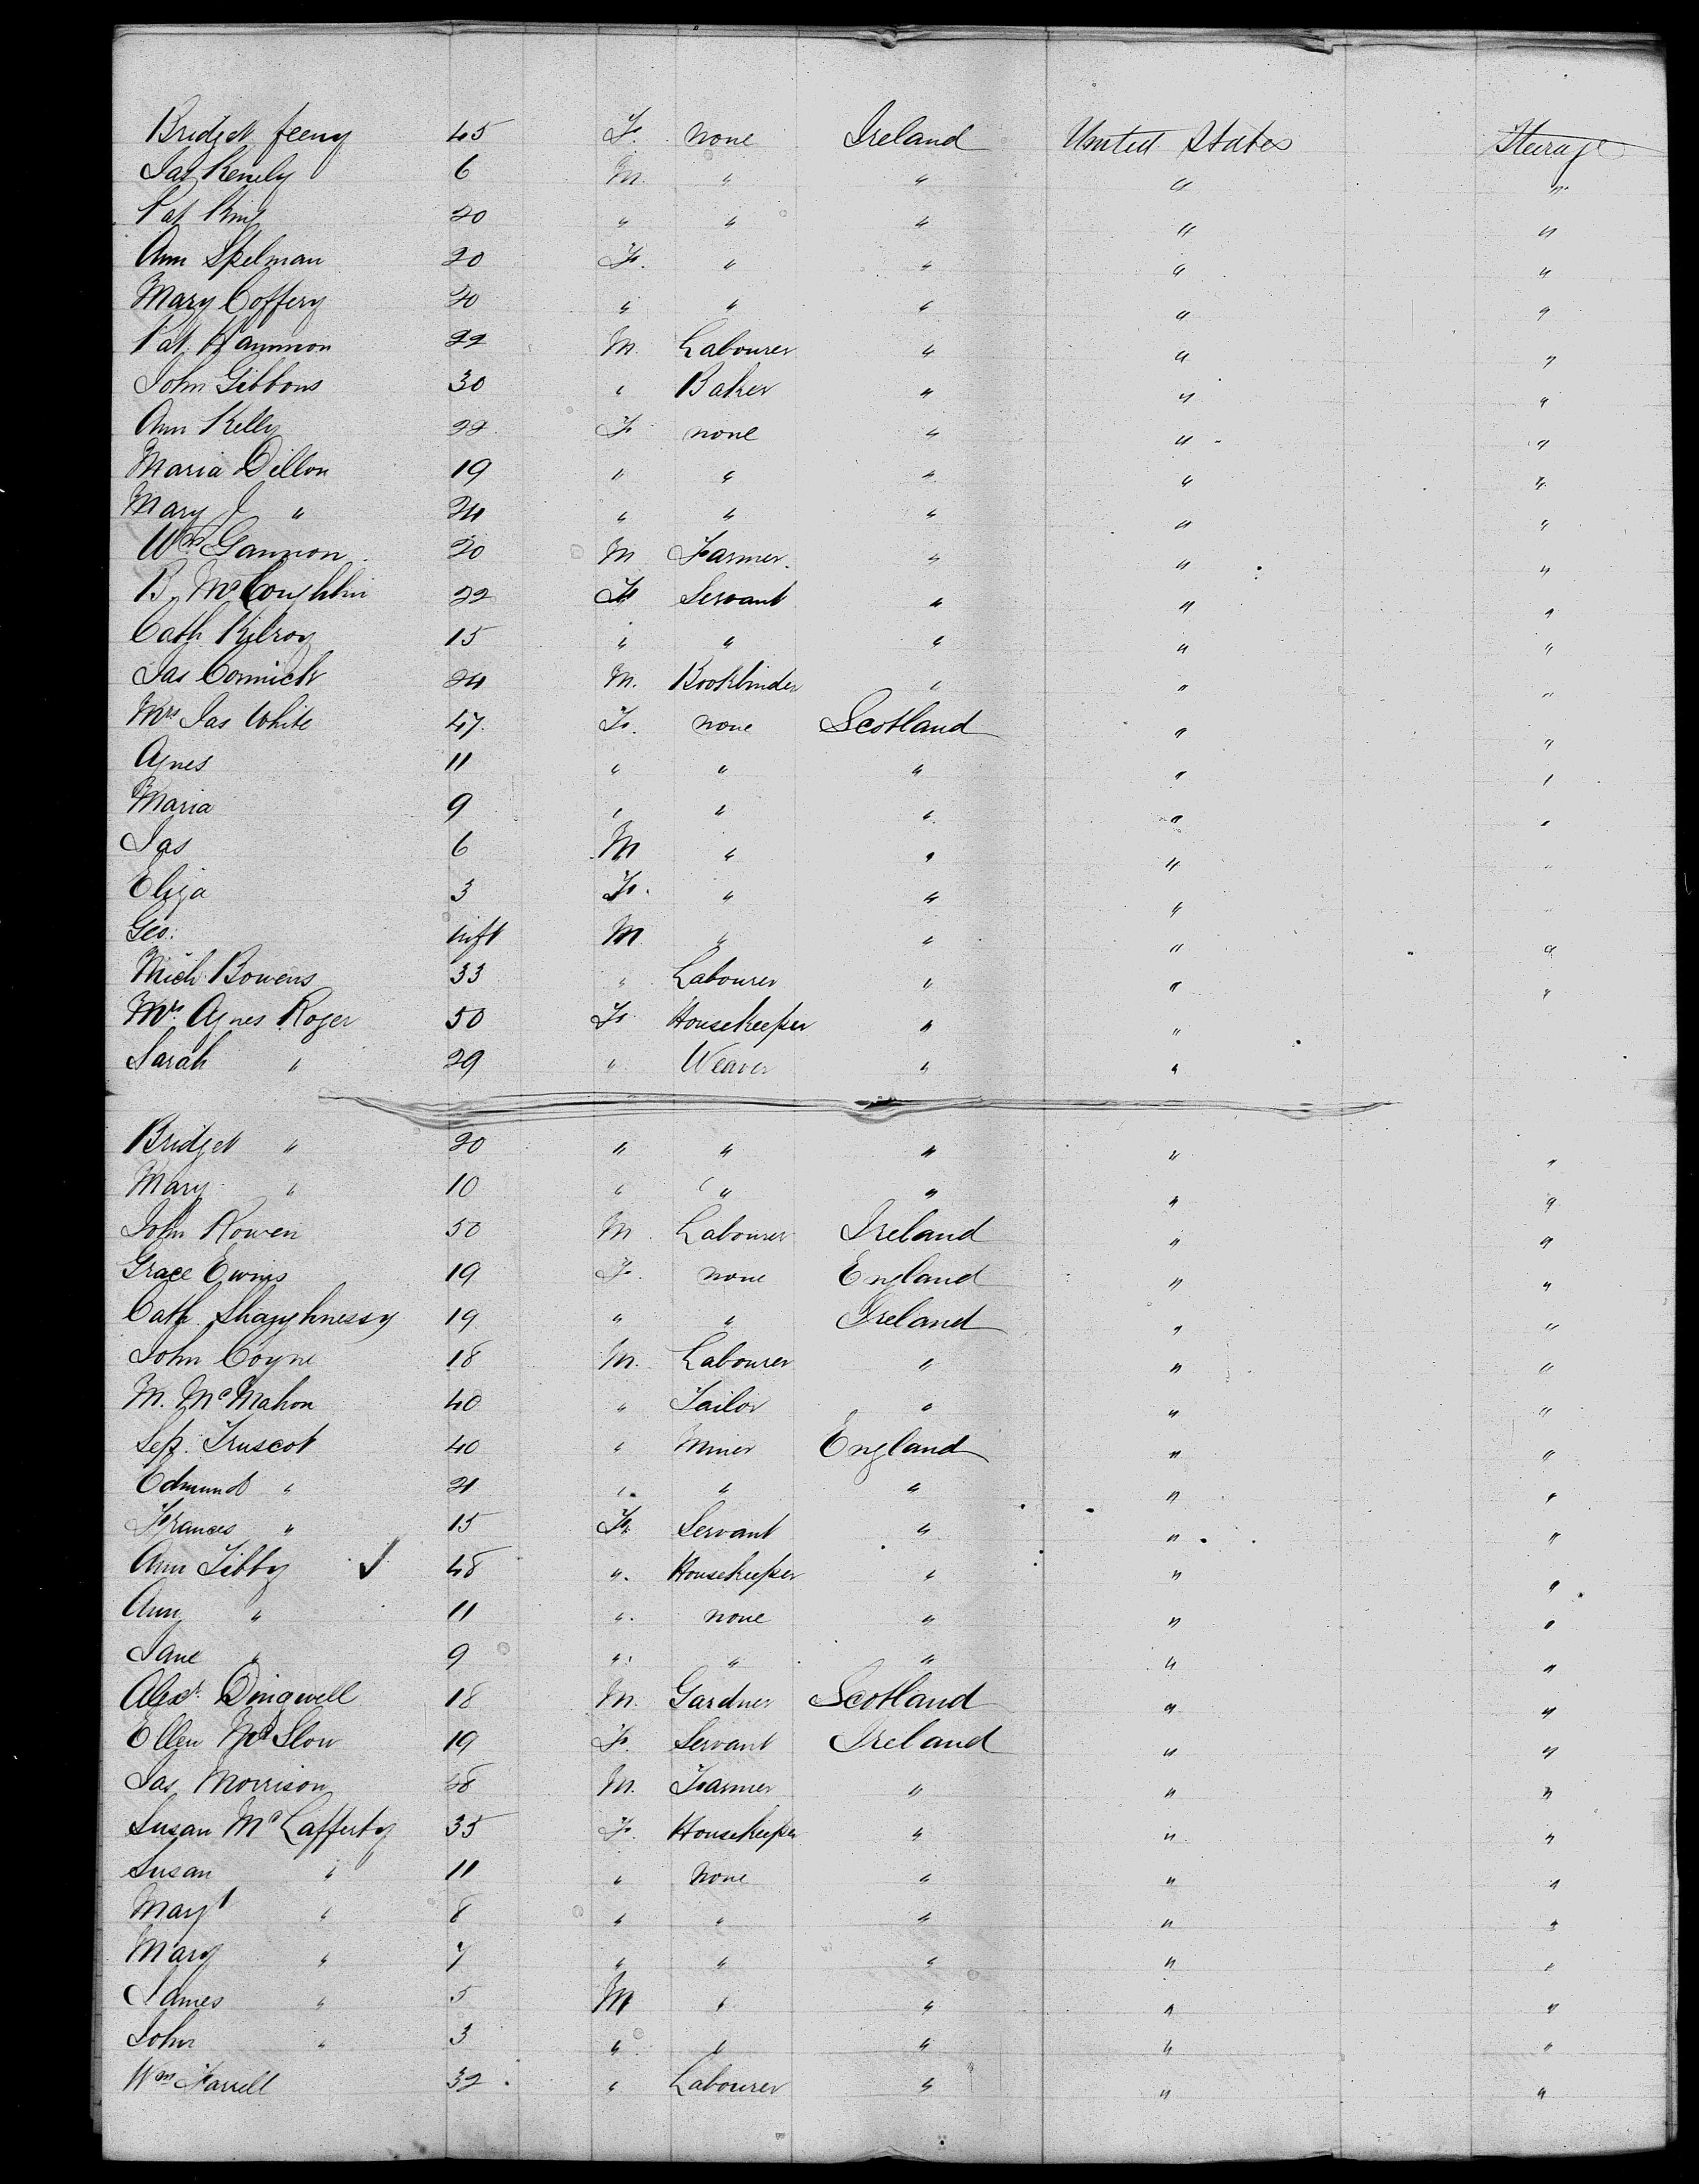 Bridget Feeny 45 F. none Ireland United States Steerage
Jas Kenely 6 M. " " " "
Pat King 20 " " " " "
Ann Spelman 20 F. " " " "
Mary Coffery 20 " " " " "
Pat Hammon 22 M. Labourer " " "
John Gibbons 30 " Baker " " "
Ann Kelly 22 F none " " "
Maria Dillon 19 " " " " "
Mary J " 24 " " " " "
Wm Gannon 20 M Farmer. " " "
B. McCoughlin 22 F Servant " " "
Cath Kilroy 15 " " " " "
Jas Cormick 24 M. Bookbinder " " "
Mrs Jas White 47. F. none Scotland " "
Agnes 11 " " " " "
Maria 9 " " " " "
Jas 6 M " " " "
Eliza 3 F. " " " "
Geo: inft M " " " "
Mich Bowens 33 " Labourer " " "
Mrs. Agnes Roger 50 F Housekeeper " "
Sarah " 29 " Weaver " "
Bridget " 20 " " " " "
Mary " 10 " " " " "
John Rowen 50 M. Labourer Ireland " "
Grace Ewins 19 F. none England " "
Cath. Shaughnessy 19 " " Ireland " "
John Coyne 18 M. Labourer " " "
M. McMahon 40 " Tailor " " "
Sep. Truscot 40 " Miner England " "
Edmund " 21 " " " " "
Frances " 15 F. Servant " " "
Ann Tibby ✓ 48 " Housekeeper " " "
Amy " 11 " none " " "
Jane " 9 " " " " "
Alexr. Dingwell 18 M. Gardner Scotland " "
Ellen McSlow 19 F. Servant Ireland " "
Jas Morrison 48 M. Farmer " " "
Susan McLafferty 35 F. Housekeeper " " "
Susan " 11 " none " " "
Margt " 8 " " " " "
Mary " 7 " " " " "
James " 5 M " " " "
John " 3 " " " " "
Wm Farrell 32 " Labourer " " "